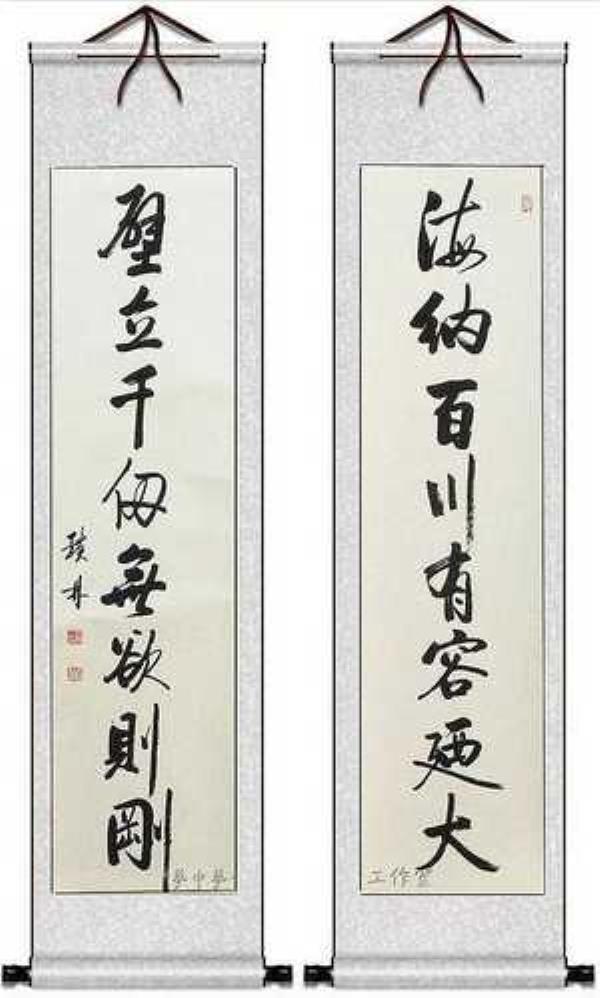 海納百川有容廼大
壁立千仞無欲則剛
工作室
夢中夢